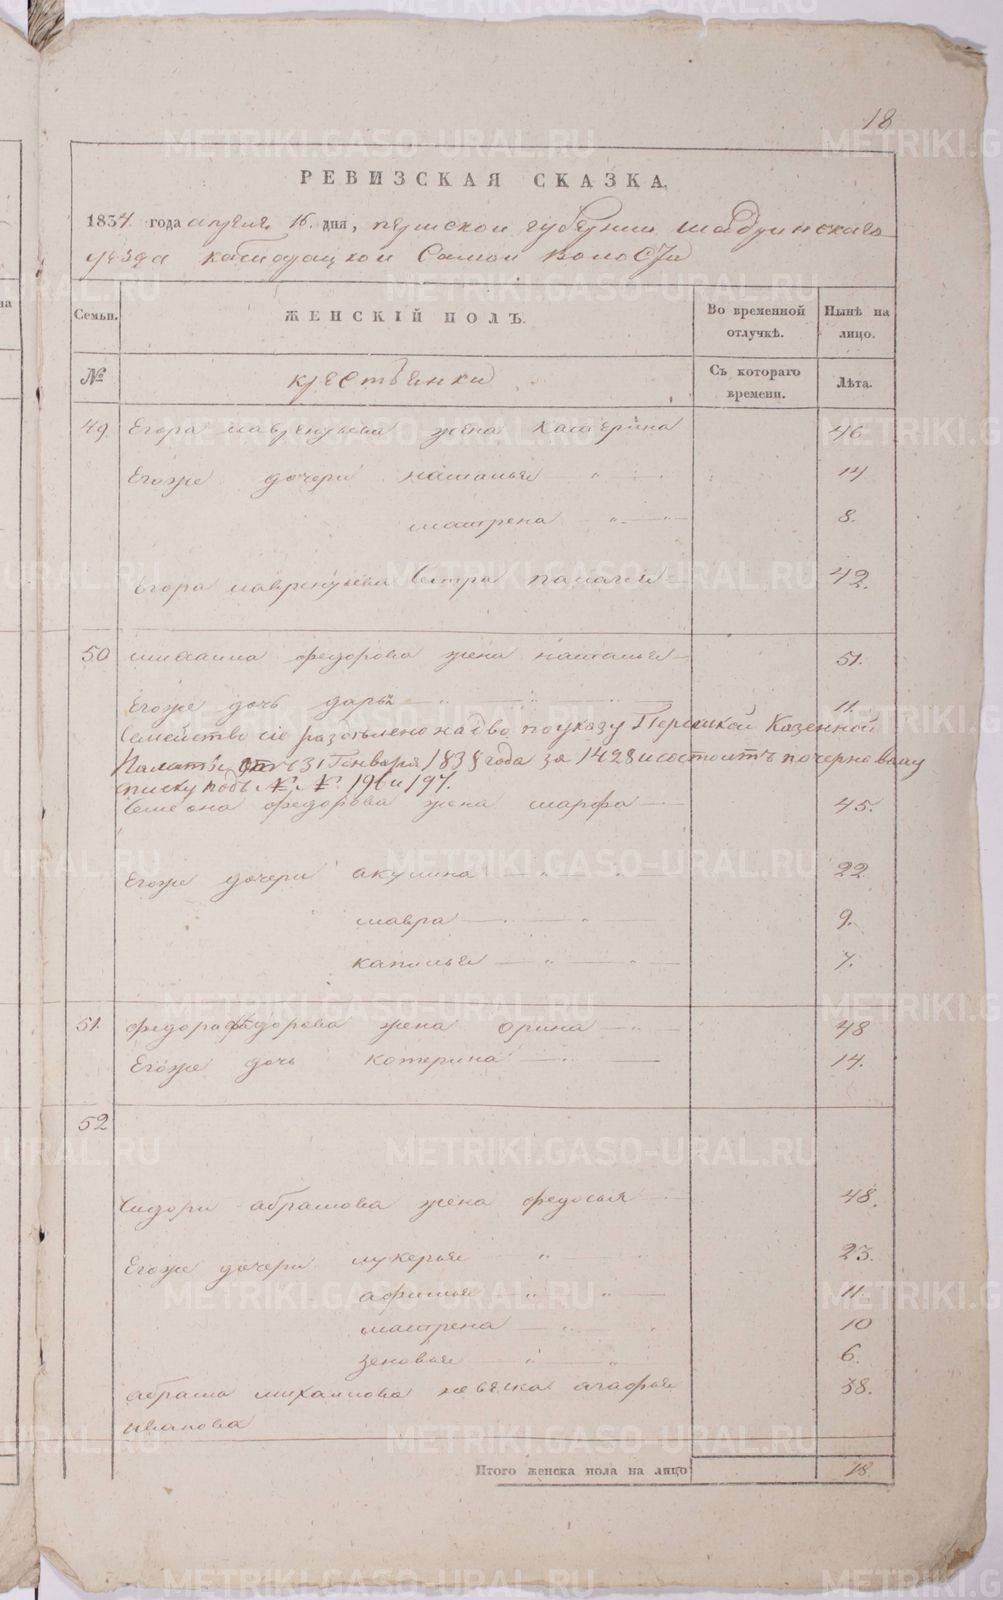 18
РЕВИЗСКАЯ СКАЗКА.
1834 года апреля 16 дня, пермской губернии шадринскаго
уезда самой волости
Семьи.
ЖЕНСКІЙ ПОЛЪ.
Во временной отлучкѣ.
Нынѣ на лицо.
№
крестьянки
Съ котораго времени.
Лѣта.
49 Егора лаврентьева жена катерина 46
Егоже дочери наталья 14
матрена 8.
Егора лаврентьева сестра палагея 42.
50 михаила федорова жена наталья 51.
Егоже дочь дарья 11.
Семейство сіе раздѣлено на два по указу Пермской Казенной
Палаты отъ 31 Генваря 1838 года за 1428 и состоитъ по черновому
списку подъ №. №. 196 и 197.
семена федорова жена марфа 45.
Егоже дочери акулина 22
мавра 9.
капилья 7.
51. федора федорова жена орина 48
Егоже дочь котерина 14.
52
Сидора абрамова жена федосья 48.
Егоже дочери лукерья 23.
афимья 11
матрена 10
зеновья 6.
абрама михаилова невѣска агафья 38.
иванова
Итого женска пола на лицо 18
METRIKI.GASO-URAL.RU